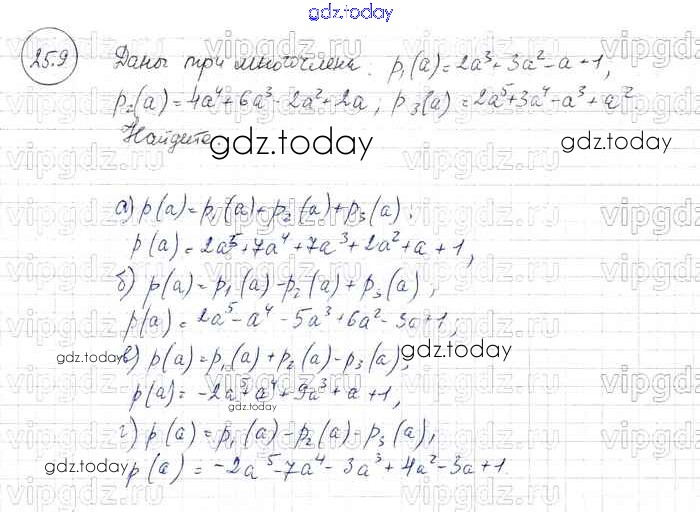 gdz.today
25.9 Даны три многочлена: p₁(a)=2a³+3a²-a+1,
p₂(a)=4a⁴+6a³-2a²+2a; p₃(a)=2a⁵+3a⁴-a³+a².
Найдите
gdz.today
gdz.today
а) p(a)=p₁(a)+p₂(a)+p₃(a);
p(a)=2a⁵+7a⁴+7a³+2a²+a+1,
б) p(a)=p₁(a)-p₂(a)+p₃(a),
p(a)=2a⁵-a⁴-5a³+6a²-3a+1;
gdz.today
в) p(a)=p₁(a)+p₂(a)-p₃(a),
gdz.today
p(a)=-2a⁵+a⁴+9a³+a+1,
gdz.today
г) p(a)=p₁(a)-p₂(a)-p₃(a),
gdz.today
p(a)=-2a⁵-7a⁴-3a³+4a²-3a+1.